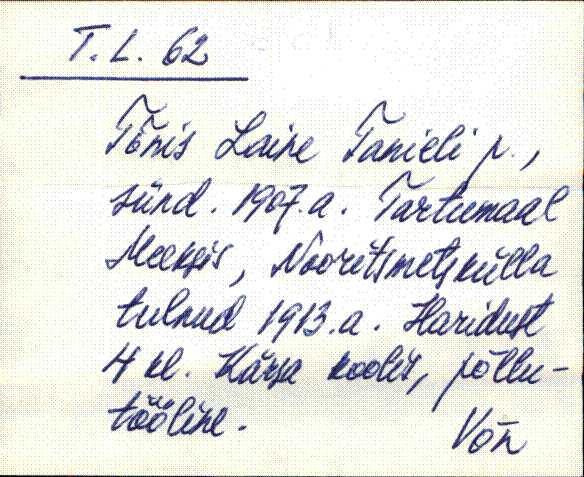 T. L. 62
Tõnis Laine Tanieli p.,
sünd. 1907. a. Tartumaal
Meeksis, Nooritsmetskülla
tulnud 1913. a. Haridust
4 kl. Kärsa koolis, põllu-
tööline.
Võn